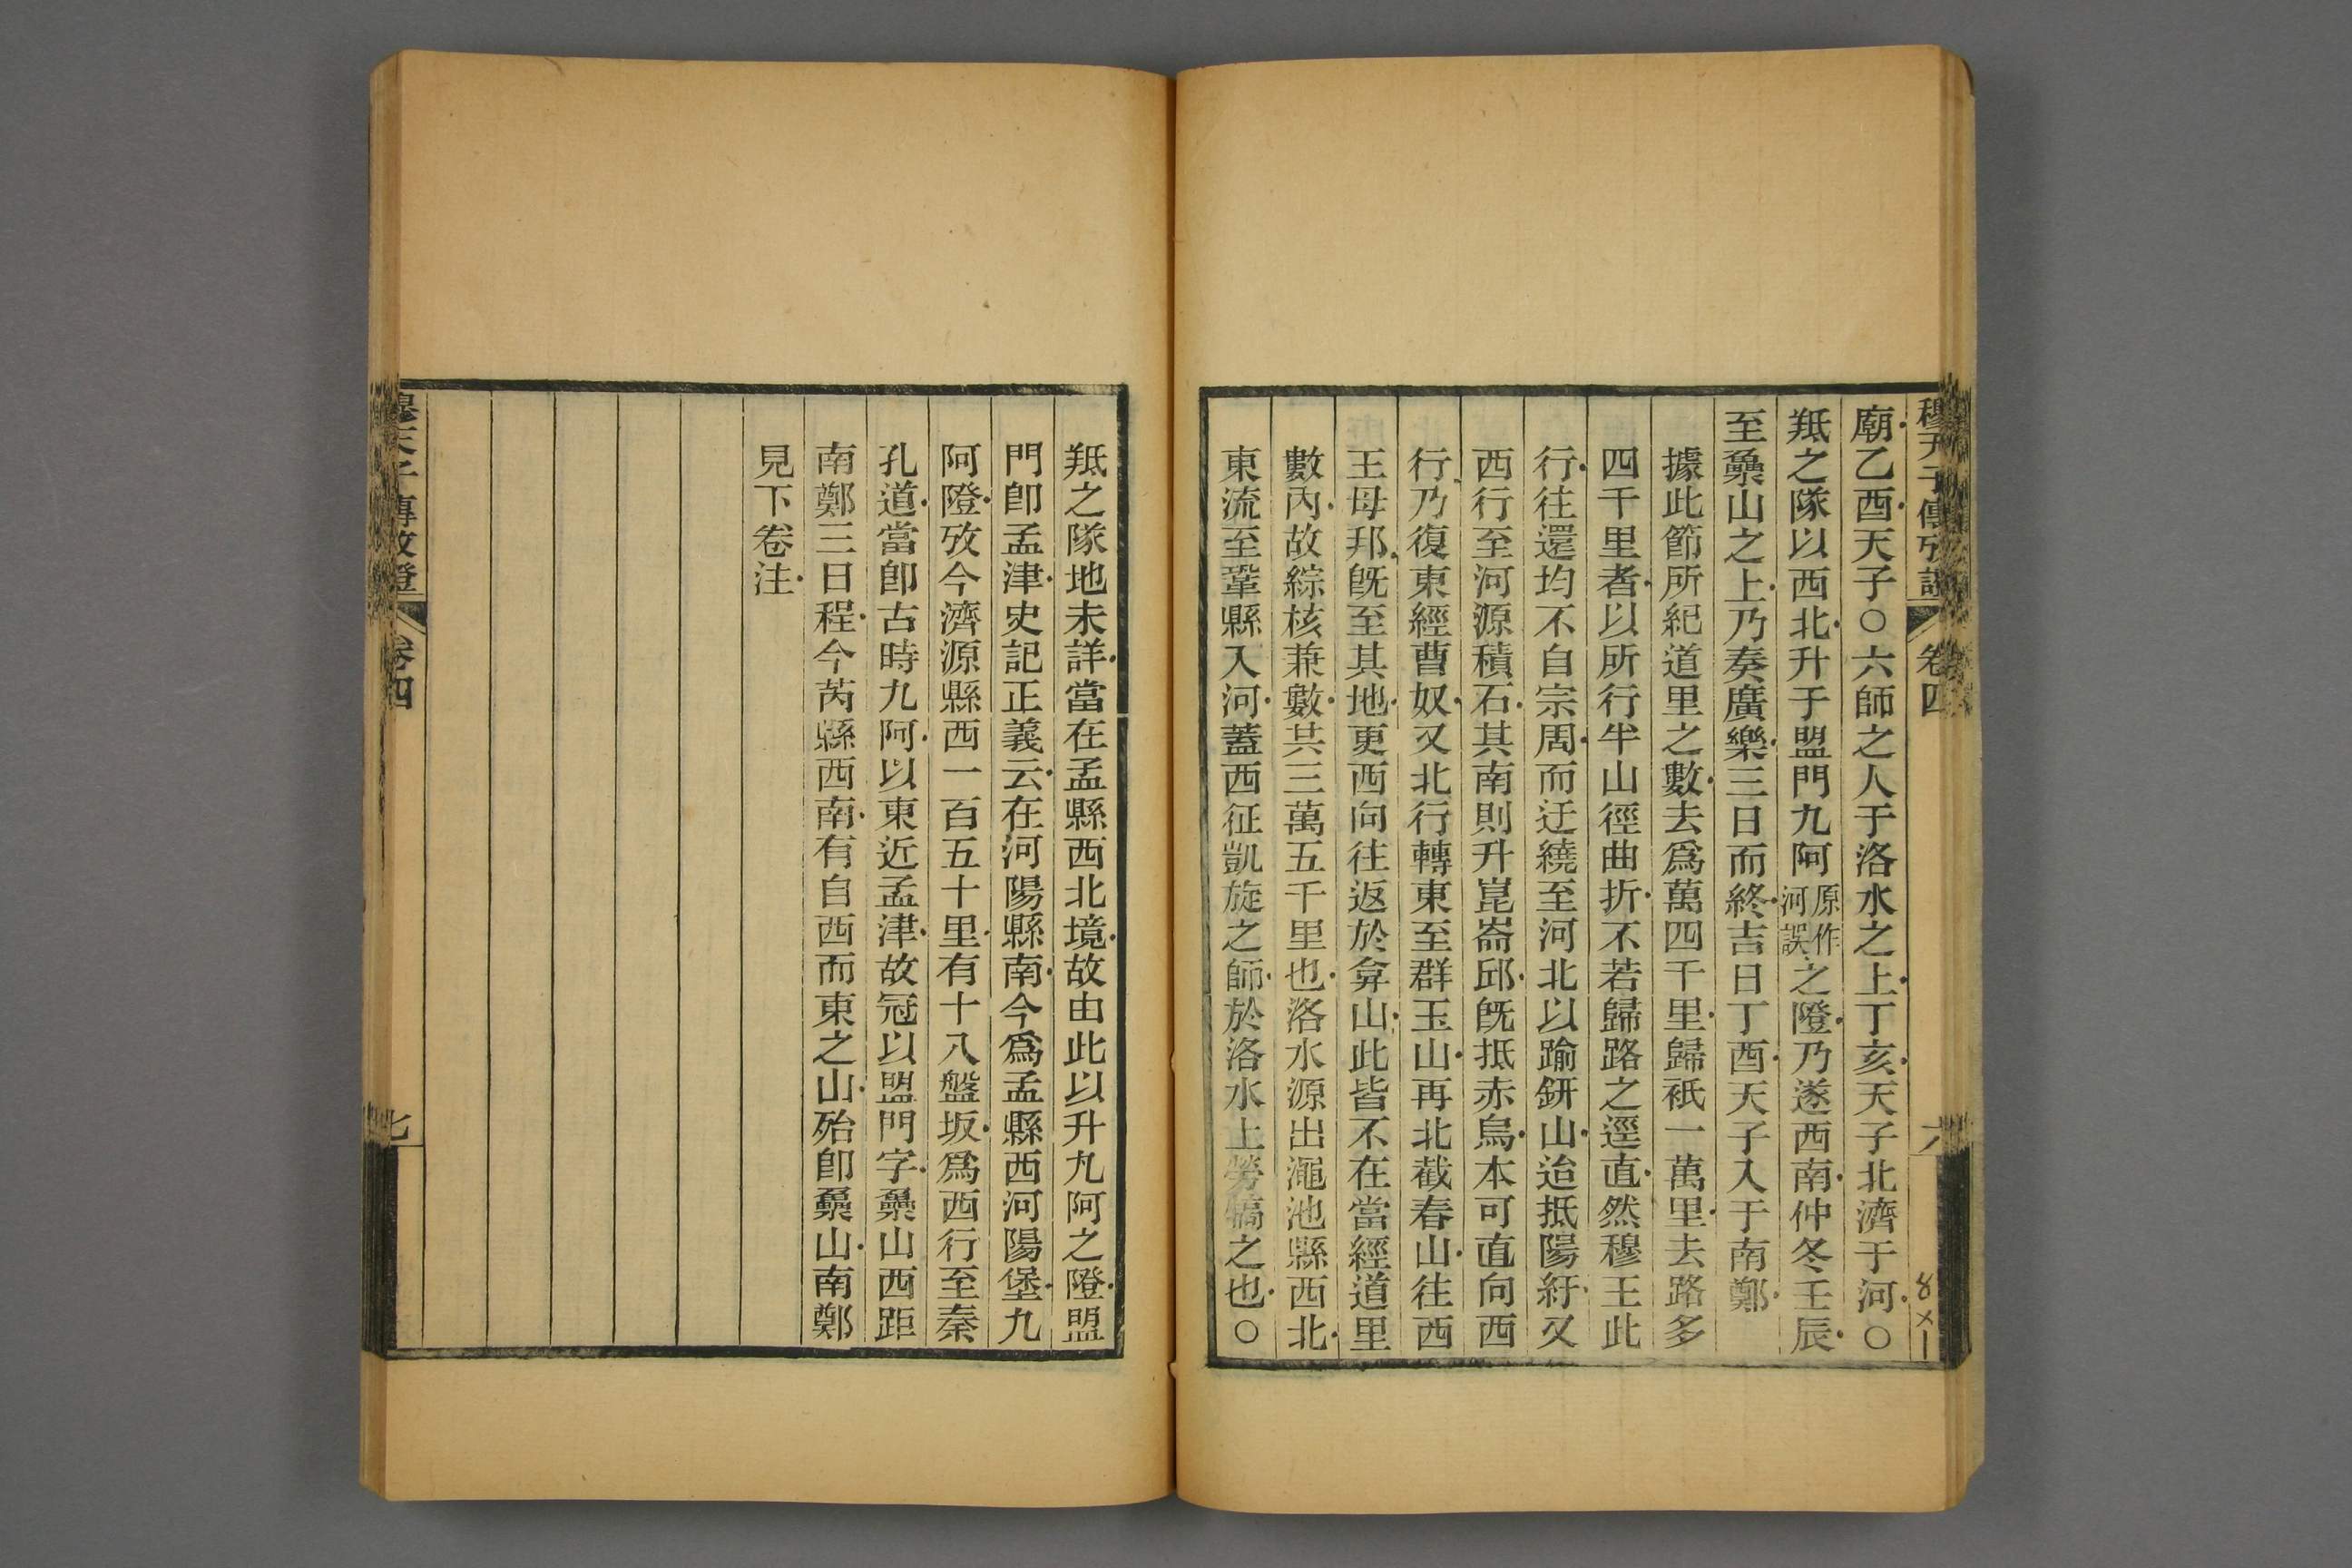 穆天子傳攷證 卷四 六
廟乙酉天子○六師之人于洛水之上丁亥天子北濟于河○
羝之隊以西北升于盟門九阿原作河誤之隥乃遂西南仲冬壬辰
至𣊓山之上乃奏廣樂三日而終吉日丁酉天子入于南鄭
據此節所紀道里之數去爲萬四千里歸祇一萬里去路多
四千里者以所行半山徑曲折不若歸路之逕直然穆王此
行往還均不自宗周而迂繞至河北以踰鈃山迨抵陽紆又
西行至河源積石其南則升崑崙邱旣抵赤烏本可直向西
行乃復東經曹奴又北行轉東至群玉山再北截春山往西
王母邦旣至其地更西向往返於弇山此皆不在當經道里
數內故綜核兼數共三萬五千里也洛水源出澠池縣西北
東流至鞏縣入河蓋西征凱旋之師於洛水上勞犒之也○
羝之隊地未詳當在孟縣西北境故由此以升九阿之隥盟
門卽孟津史記正義云在河陽縣南今爲孟縣西河陽堡九
阿隥攷今濟源縣西一百五十里有十八盤坂爲西行至秦
孔道當卽古時九阿以東近孟津故冠以盟門字𣊓山西距
南鄭三日程今芮縣西南有自西而東之山殆卽𣊓山南鄭
見下卷注
穆天子傳攷證 卷四 七
8×1